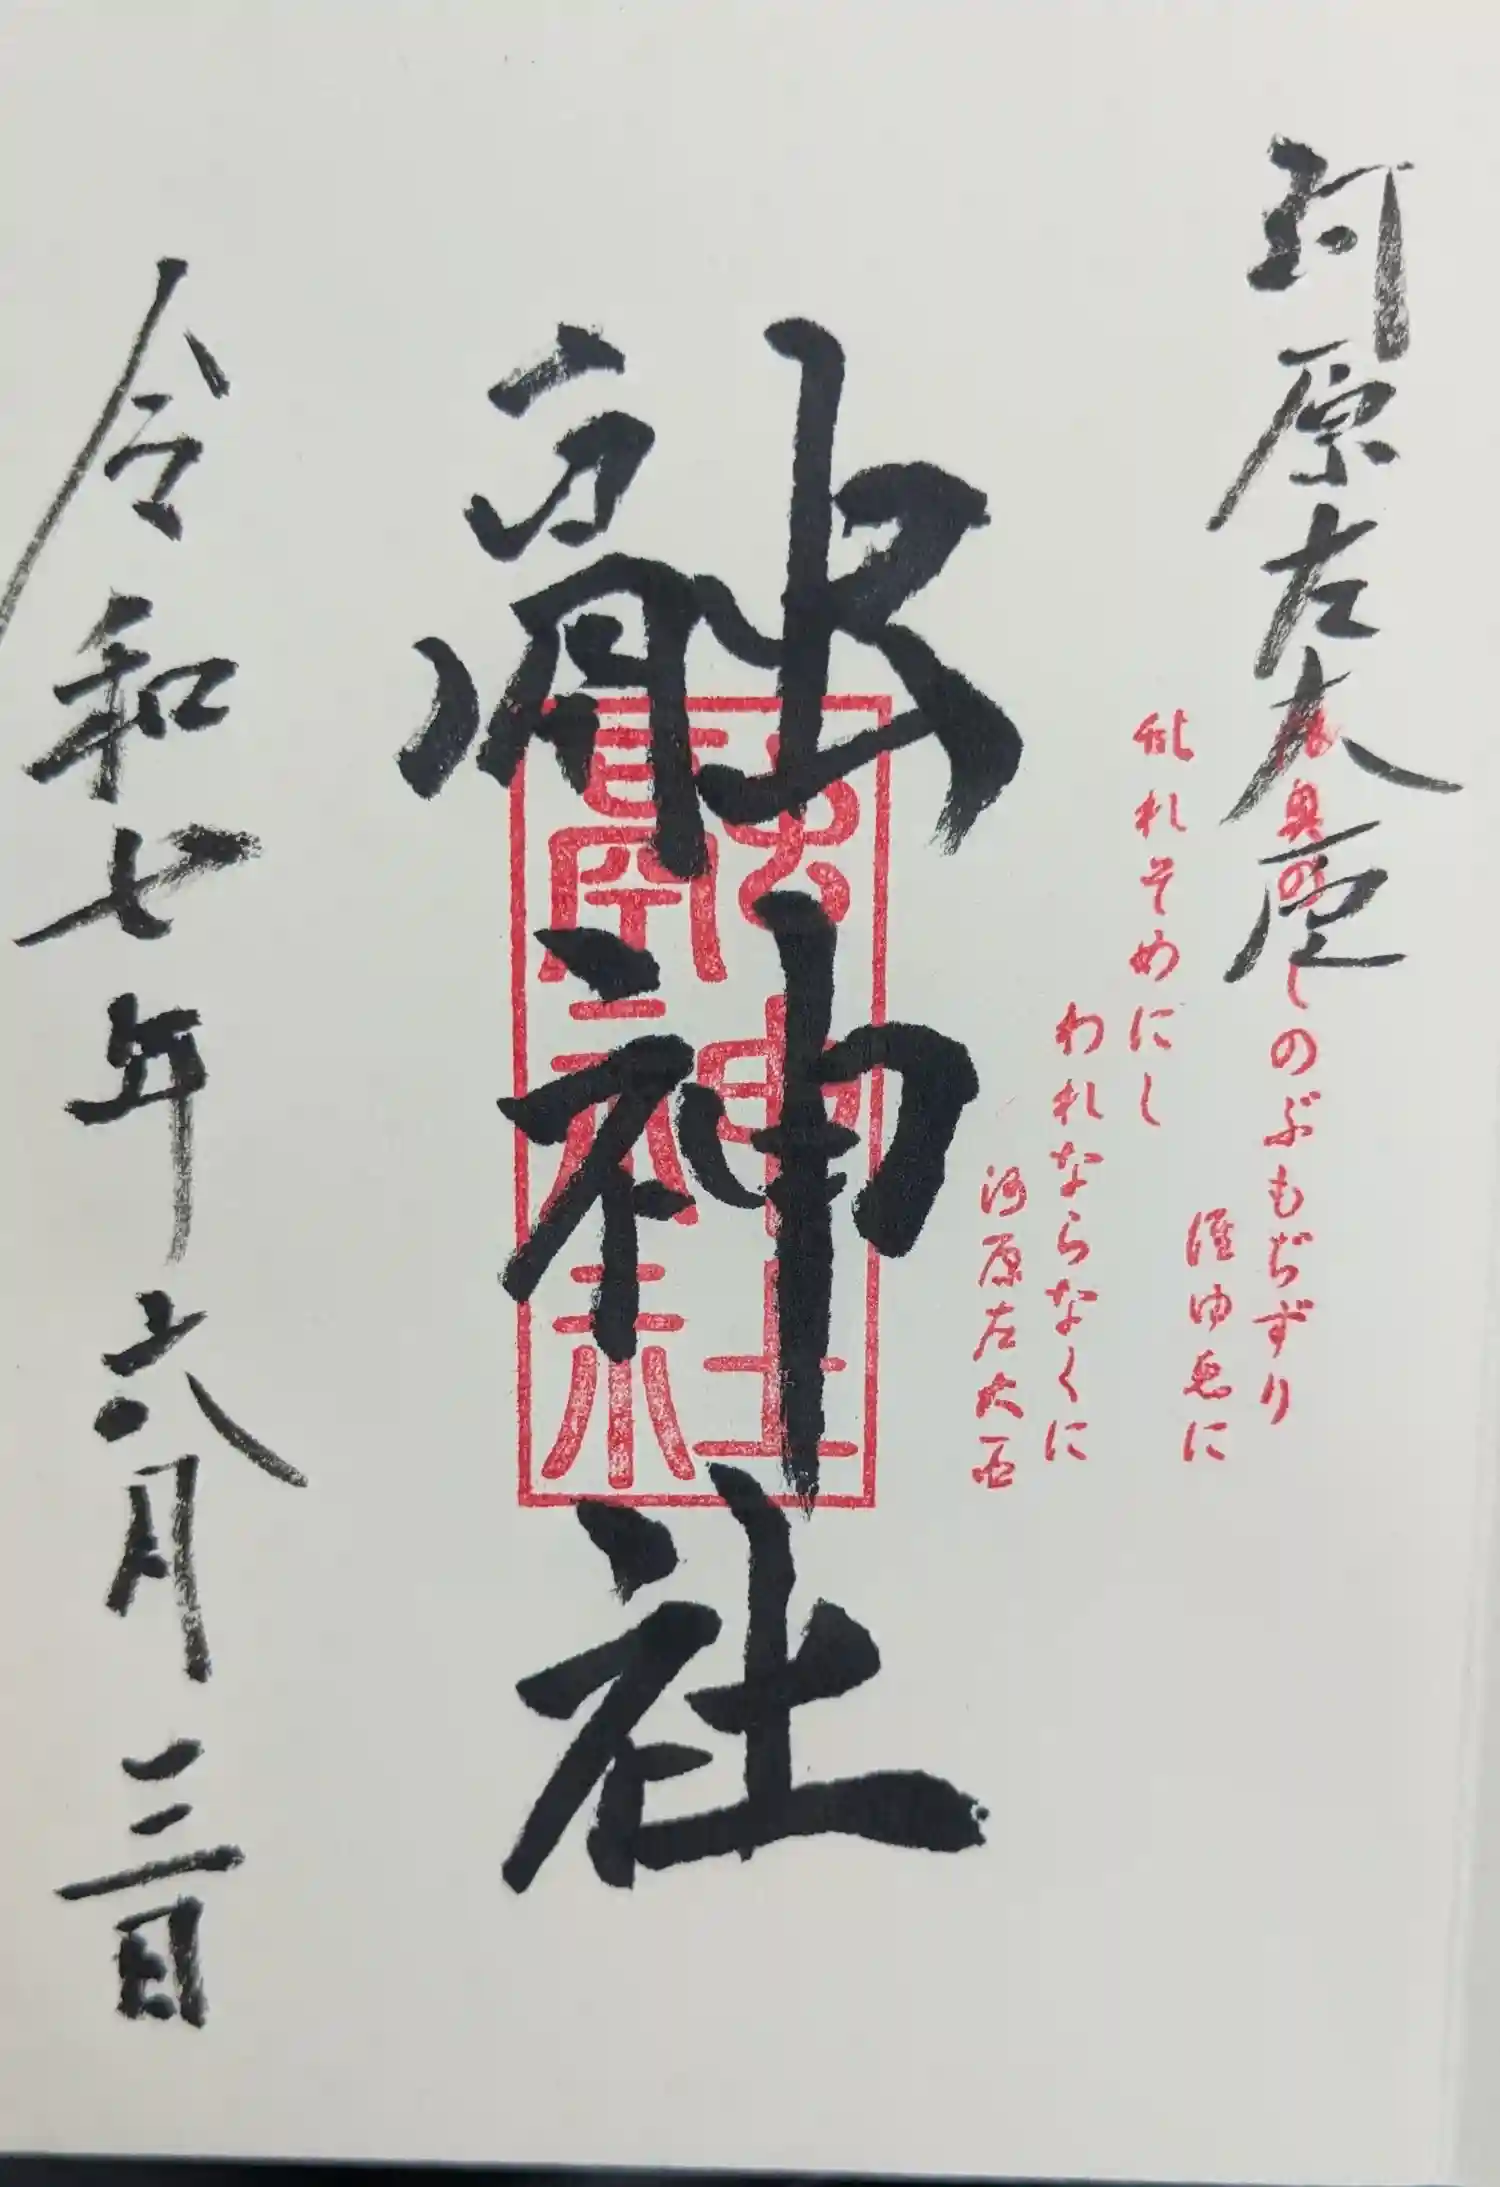 河原左大臣
陸奥のしのぶもぢずり
誰ゆゑに
乱れそめにし
われならなくに
河原左大臣
融神社
融神社
令和七年六月三日